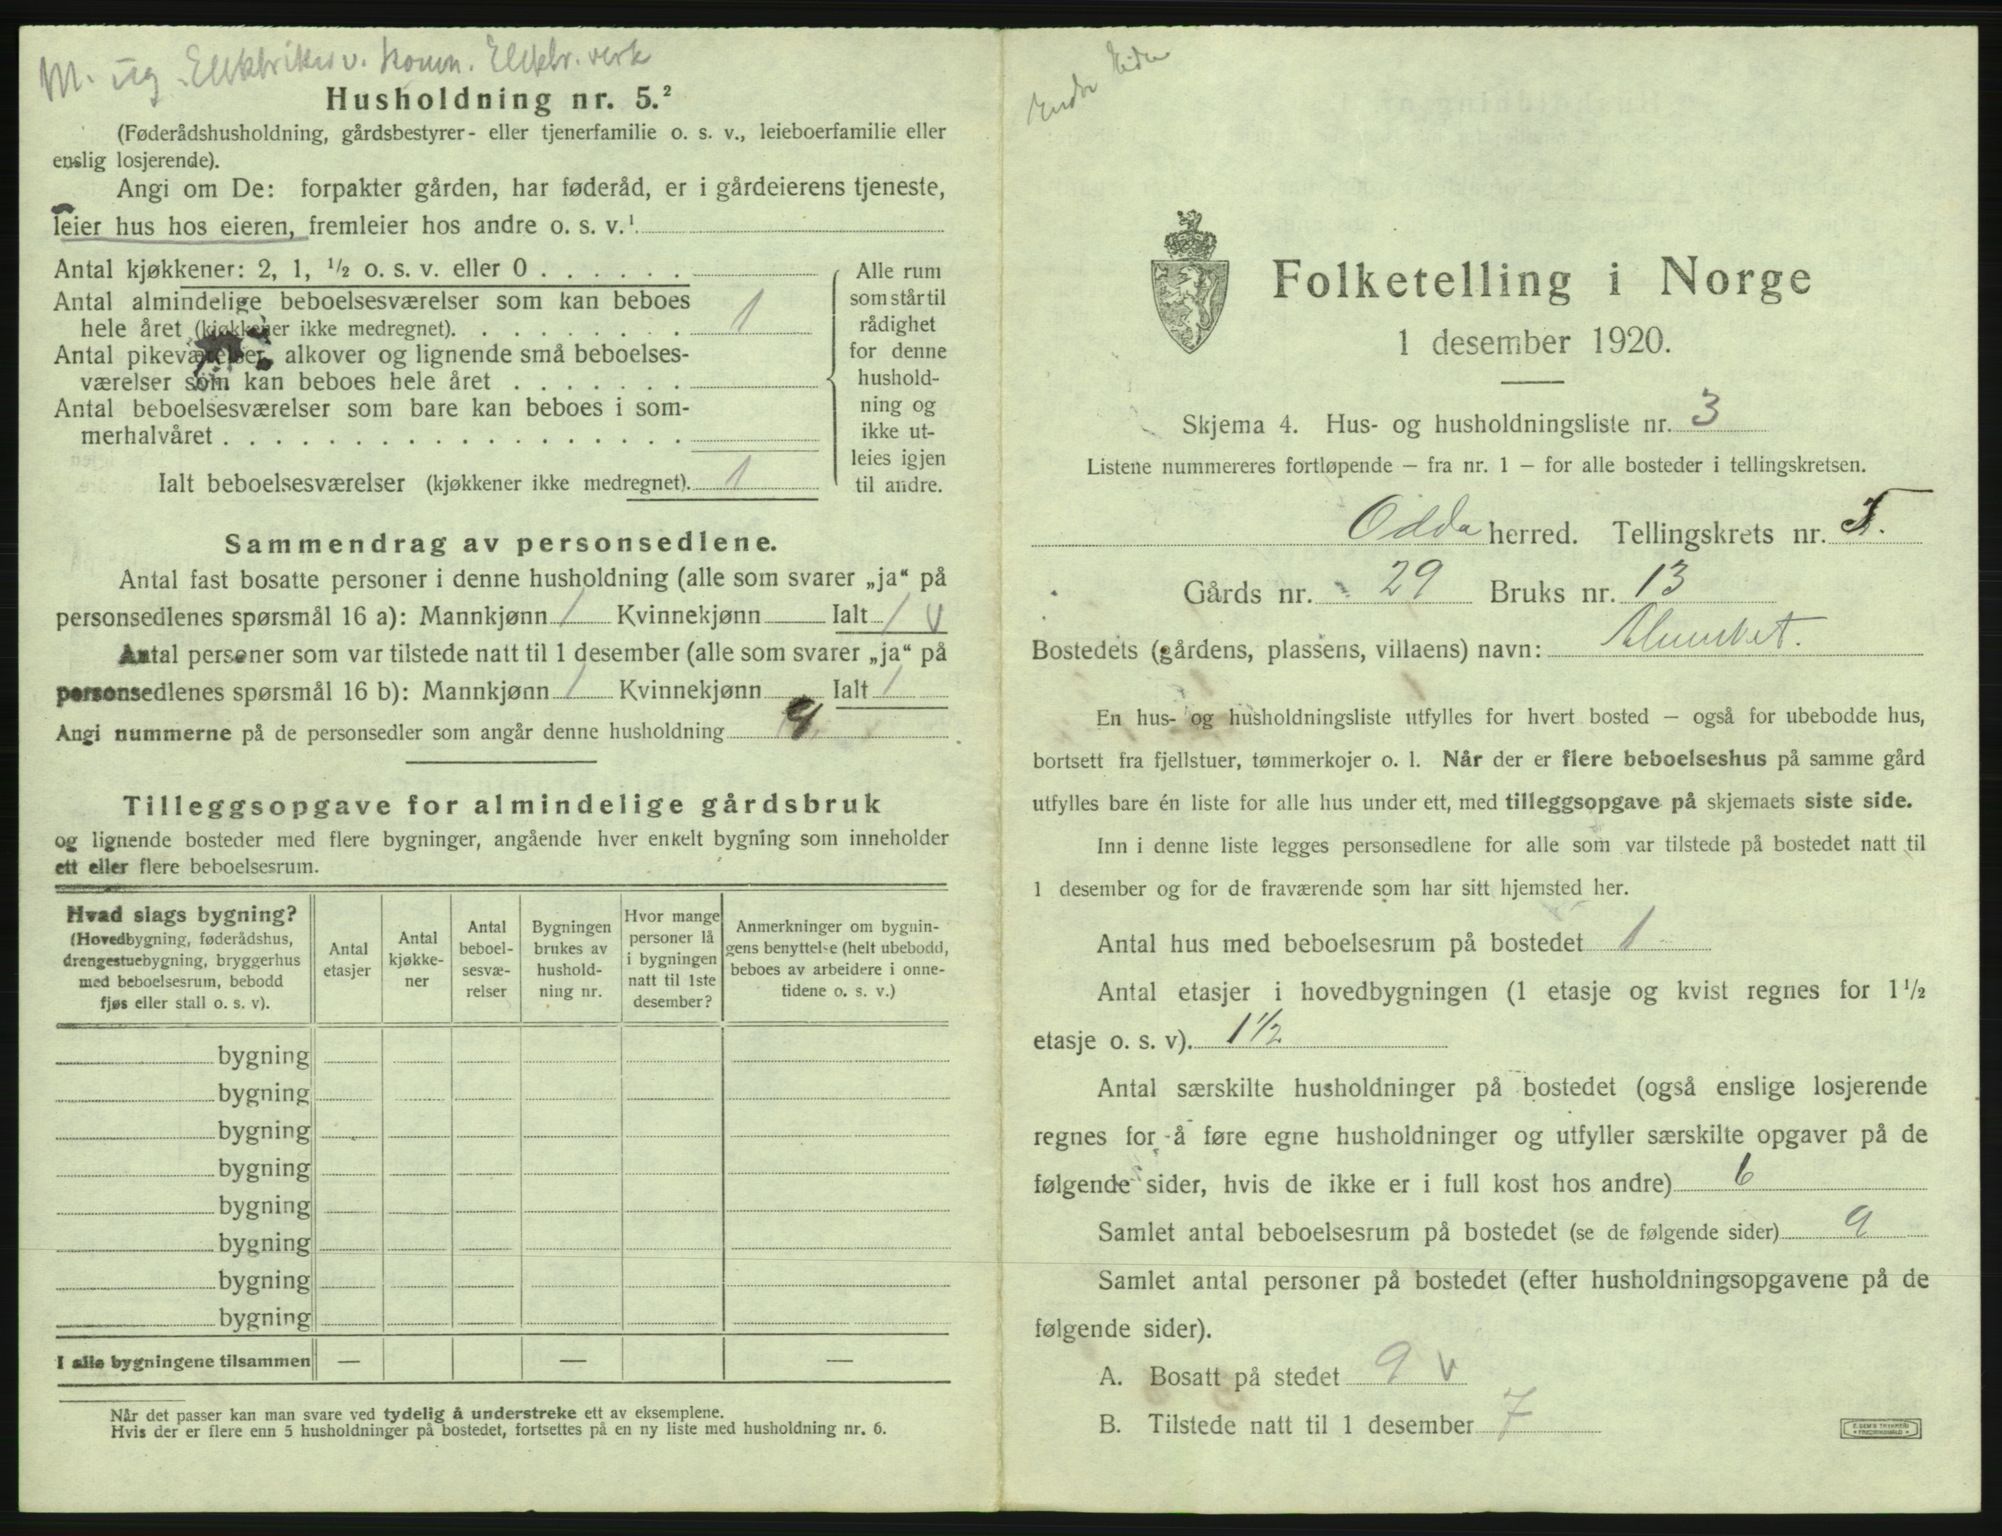 M. ug Elektriker v. Komm. Elektr. verk
Husholdning nr. 5.²
(Føderådshusholdning, gårdsbestyrer- eller tjenerfamilie o. s. v., leieboerfamilie eller
enslig losjerende).
Angi om De: forpakter gården, har føderåd, er i gårdeierens tjeneste,
leier hus hos eieren, fremleier hos andre o. s. v.¹
Antal kjøkkener: 2, 1, ½ o. s. v. eller 0 . . . . . .
Antal almindelige beboelsesværelser som kan beboes
hele året (kjøkkener ikke medregnet). . . . . . . . . 1
Antal pikeværelser, alkover og lignende små beboelses-
værelser som kan beboes hele året . . . . . . .
Antal beboelsesværelser som bare kan beboes i som-
merhalvåret . . . . . . . . . . . . . . . . . .
Ialt beboelsesværelser (kjøkkener ikke medregnet). 1
Alle rum
som står til
rådighet
for denne
hushold-
ning og
ikke ut-
leies igjen
til andre.
Sammendrag av personsedlene.
Antal fast bosatte personer i denne husholdning (alle som svarer „ja“ på
personsedlenes spørsmål 16 a): Mannkjønn 1 Kvinnekjønn Ialt 1 v
Antal personer som var tilstede natt til 1 desember (alle som svarer „ja“ på
personsedlenes spørsmål 16 b): Mannkjønn 1 Kvinnekjønn Ialt 1
Angi nummerne på de personsedler som angår denne husholdning 9
Tilleggsopgave for almindelige gårdsbruk
og lignende bosteder med flere bygninger, angående hver enkelt bygning som inneholder
ett eller flere beboelsesrum.
Hvad slags bygning?
(Hovedbygning, føderådshus,
drengestuebygning, bryggerhus
med beboelsesrum, bebodd
fjøs eller stall o. s. v).
Antal
etasjer
Antal
kjøkke-
ner
Antal
beboel-
sesvæ-
relser
Bygningen
brukes av
hushold-
ning nr.
Hvor mange
personer lå
i bygningen
natt til 1ste
desember?
Anmerkninger om bygnin-
gens benyttelse (helt ubebodd,
beboes av arbeidere i onne-
tidene o. s. v.)
bygning
bygning
bygning
bygning
bygning
bygning
bygning
bygning
I alle bygningene tilsammen — — —
Når det passer kan man svare ved tydelig å understreke ett av eksemplene.
Hvis der er flere enn 5 husholdninger på bostedet, fortsettes på en ny liste med husholdning nr. 6.
Folketelling i Norge
1 desember 1920.
Skjema 4. Hus- og husholdningsliste nr. 3
Listene nummereres fortløpende – fra nr. 1 – for alle bosteder i tellingskretsen.
Odda herred. Tellingskrets nr. 5.
Gårds nr. 29 Bruks nr. 13
Bostedets (gårdens, plassens, villaens) navn:
En hus- og husholdningsliste utfylles for hvert bosted – også for ubebodde hus,
bortsett fra fjellstuer, tømmerkojer o. l. Når der er flere beboelseshus på samme gård
utfylles bare én liste for alle hus under ett, med tilleggsopgave på skjemaets siste side.
Inn i denne liste legges personsedlene for alle som var tilstede på bostedet natt til
1 desember og for de fraværende som har sitt hjemsted her.
Antal hus med beboelsesrum på bostedet 1
Antal etasjer i hovedbygningen (1 etasje og kvist regnes for 1½
etasje o. s. v). 1½
Antal særskilte husholdninger på bostedet (også enslige losjerende
regnes for å føre egne husholdninger og utfyller særskilte opgaver på de
følgende sider, hvis de ikke er i full kost hos andre) 6
Samlet antal beboelsesrum på bostedet (se de følgende sider) 9
Samlet antal personer på bostedet (efter husholdningsopgavene på de
følgende sider).
A. Bosatt på stedet 9 v
B. Tilstede natt til 1 desember 7